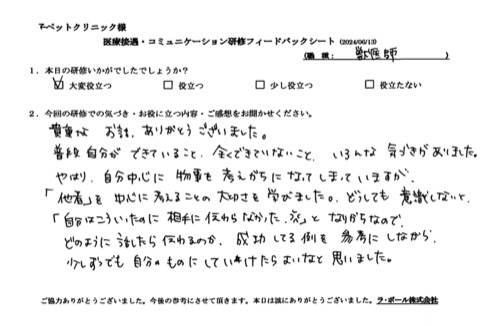 アペットクリニック様
医療接遇・コミュニケーション研修フィードバックシート (2024/06/13)
(職種: 獣医師 )
1．本日の研修いかがでしたでしょうか？
☑ 大変役立つ □ 役立つ □ 少し役立つ □ 役立たない
2．今回の研修での気づき・お役に立つ内容・ご感想をお聞かせください。
貴重な お話、ありがとうございました。
普段 自分が できていること、全くできていないこと、いろんな 気づきがありました。
やはり、自分中心に 物事を 考えがちになってしまっていますが、
「他者」を 中心に考えることの 大切さを 学びました。どうしても 意識しないと、
「自分はこういったのに 相手に伝わらなかった」と なりがちなので、
どのように 話したら 伝わるのか、成功してる 例を 参考に しながら、
少しずつでも 自分のものに していけたらよいなと 思いました。
ご協力ありがとうございました。今後の参考にさせて頂きます。本日は誠にありがとうございました。 ラ・ポール株式会社